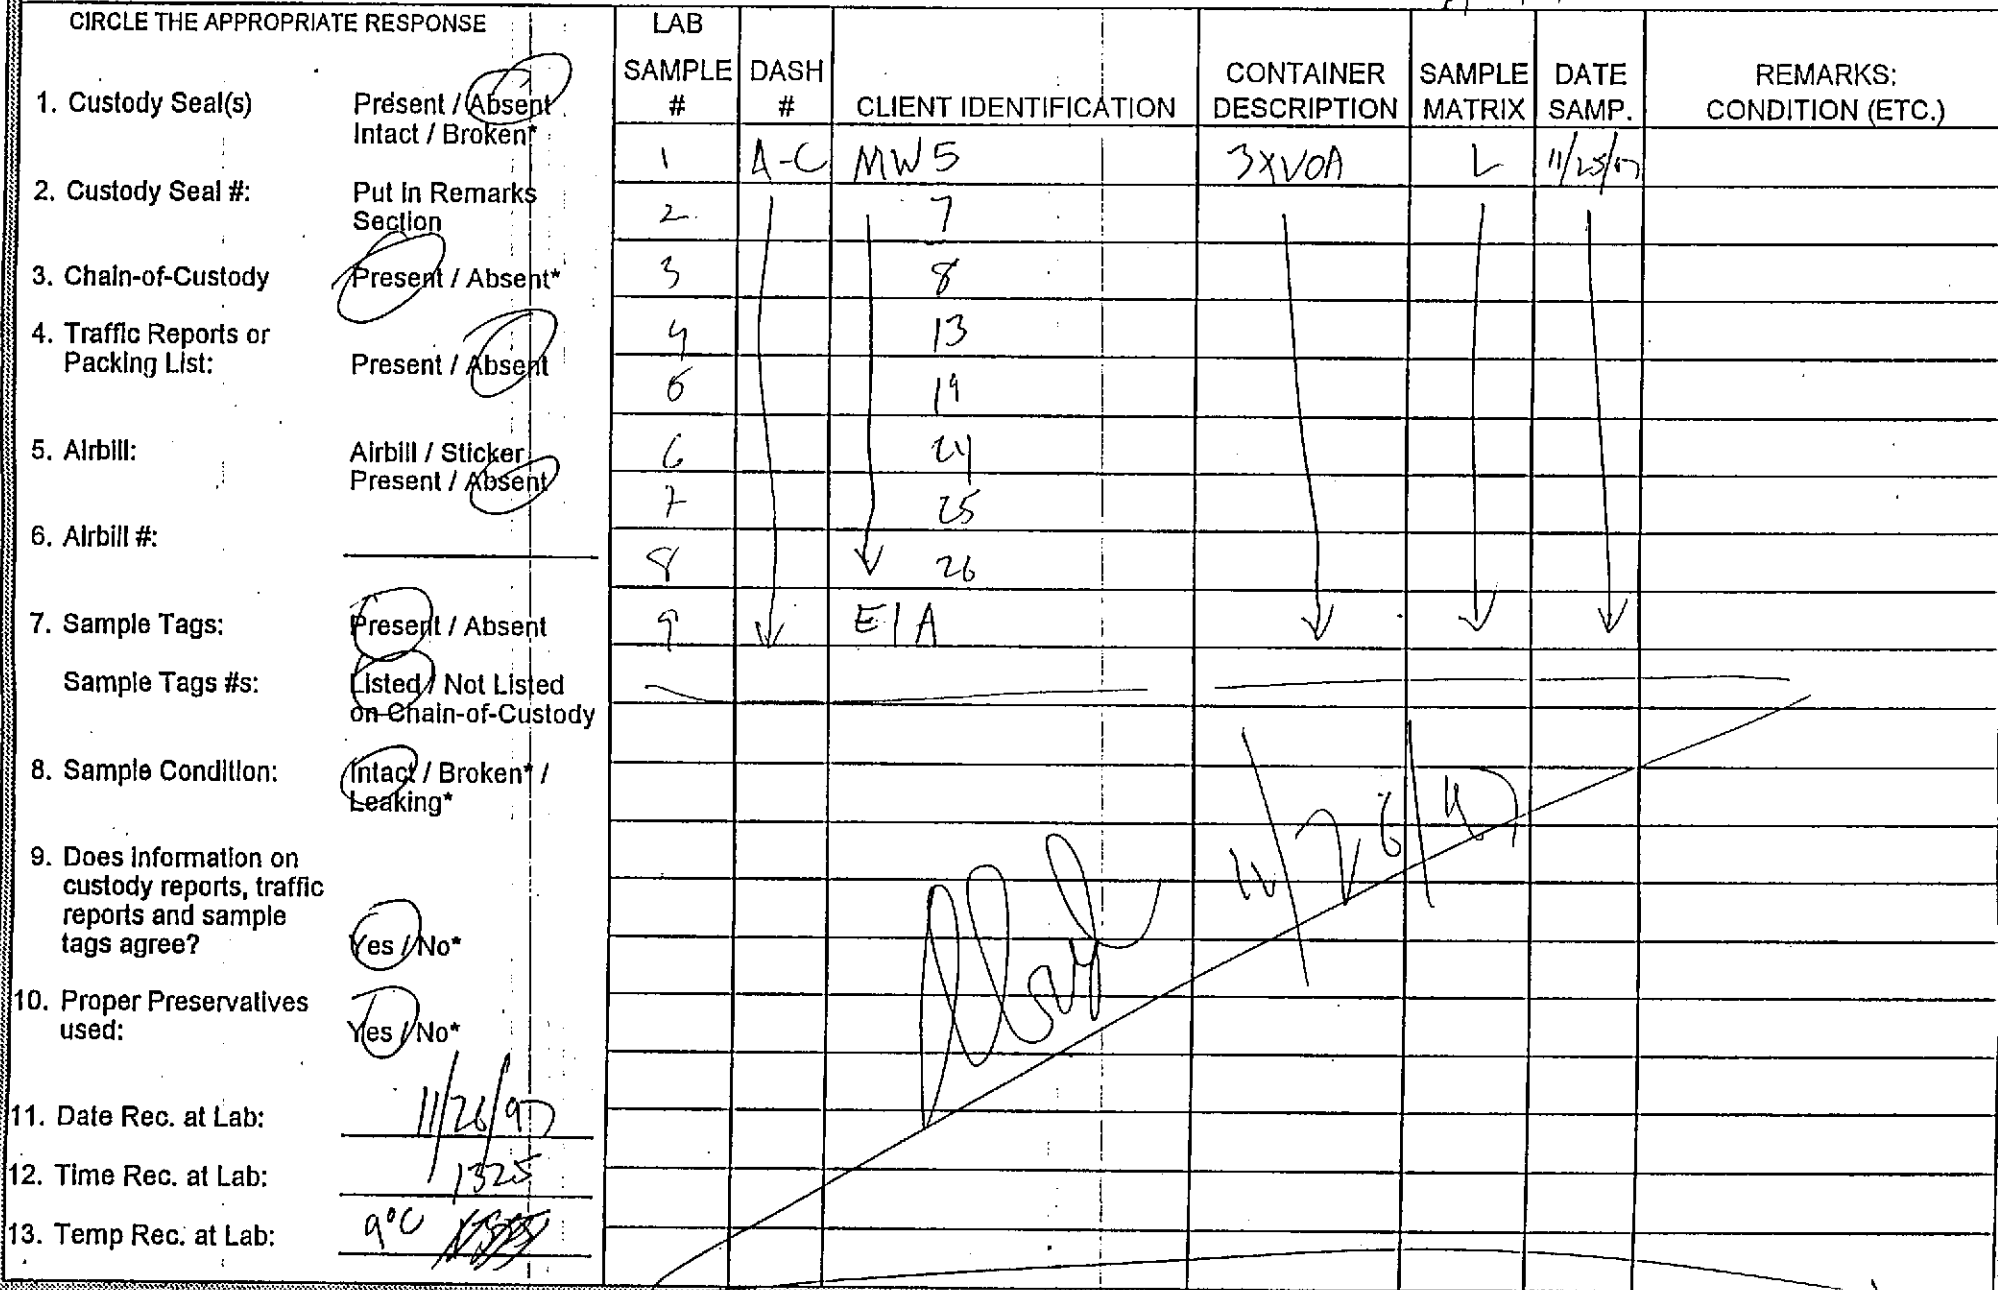 CIRCLE THE APPROPRIATE RESPONSE
1. Custody Seal(s) Present / Absent
Intact / Broken*
2. Custody Seal #: Put in Remarks
Section
3. Chain-of-Custody Present / Absent*
4. Traffic Reports or
Packing List: Present / Absent
5. Airbill: Airbill / Sticker
Present / Absent
6. Airbill #:
7. Sample Tags: Present / Absent
Sample Tags #s: Listed / Not Listed
on Chain-of-Custody
8. Sample Condition: Intact / Broken* /
Leaking*
9. Does information on
custody reports, traffic
reports and sample
tags agree? Yes / No*
10. Proper Preservatives
used: Yes / No*
11. Date Rec. at Lab: 11/26/97
12. Time Rec. at Lab: 1325
13. Temp Rec. at Lab: 9°C
LAB
SAMPLE DASH CONTAINER SAMPLE DATE REMARKS:
# # CLIENT IDENTIFICATION DESCRIPTION MATRIX SAMP. CONDITION (ETC.)
1 A-C MW5 3XVOA L 11/25/97
2 7
3 8
4 13
5 19
6 24
7 25
8 26
9 E1A
11/26/97